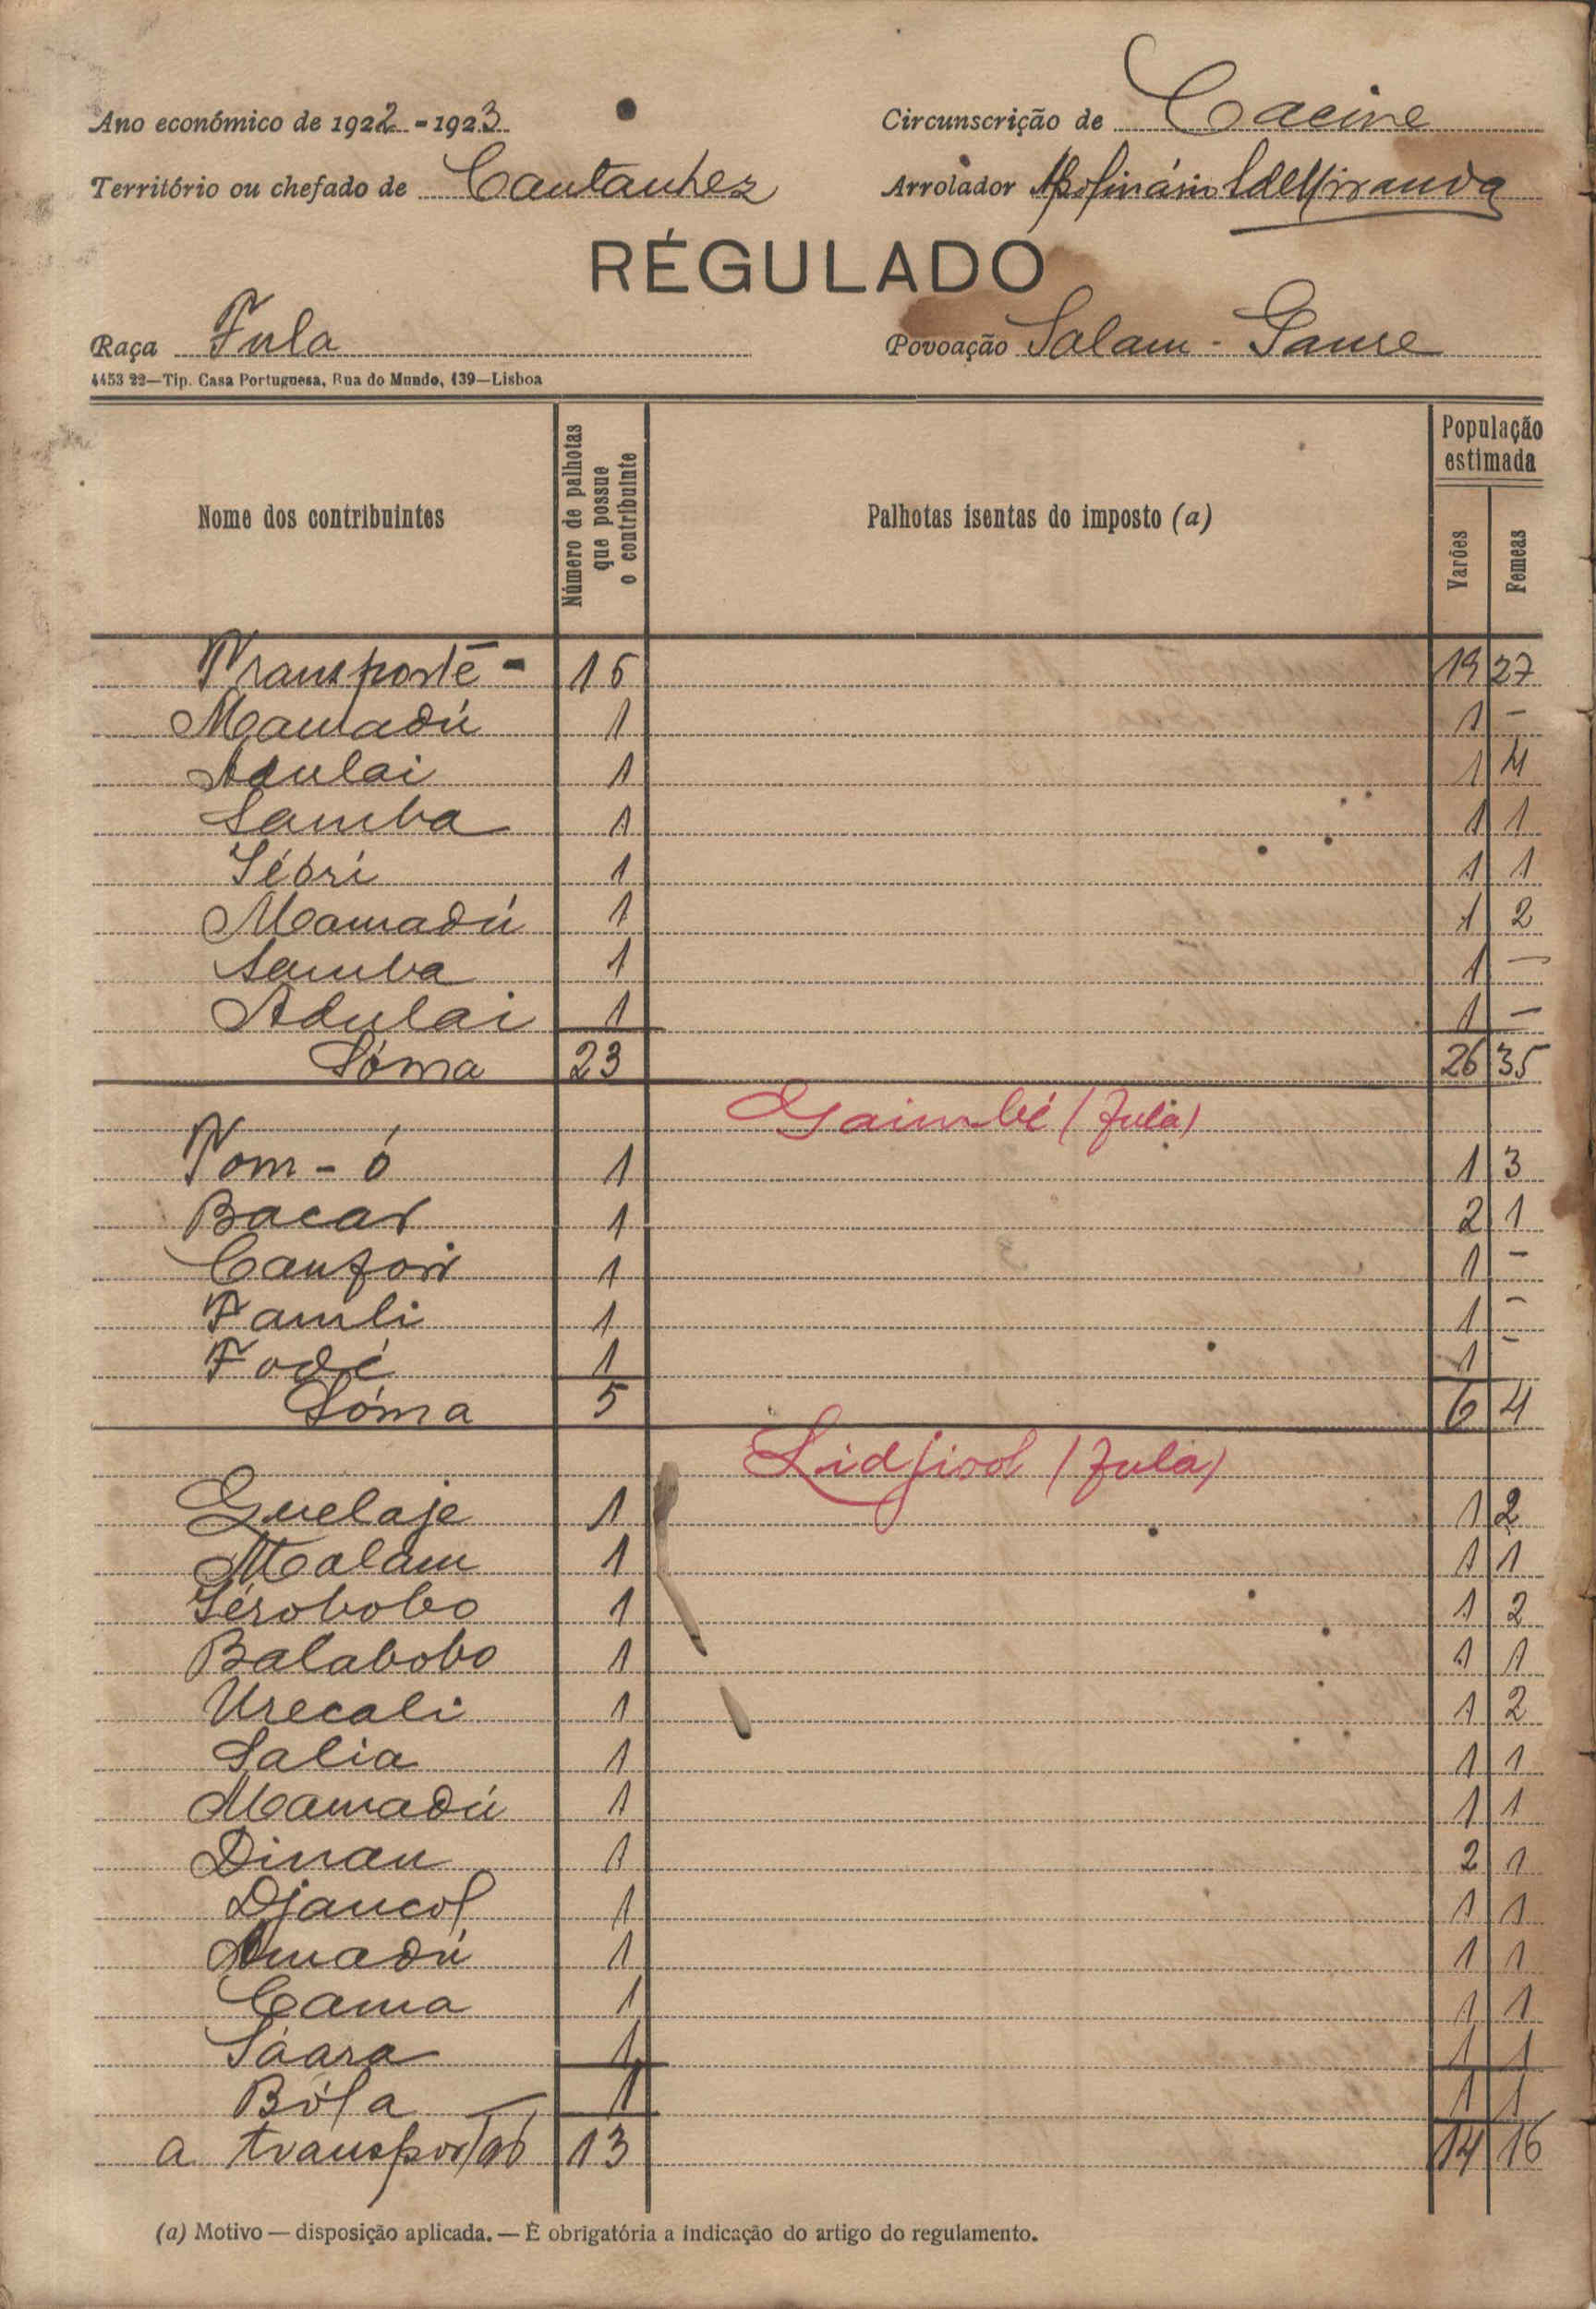 Ano económico de 1922-1923
Circunscrição de Cacine
Território ou chefado de Cantanhez
Arrolador Apolinário de Miranda
RÉGULADO
Raça Fula
Povoação Salam-
4453 22—Tip. Casa Portuguesa, Rua do Mundo, 139—Lisboa
Nome dos contribuintes
Número de palhotas que possue o contribuinte
Palhotas isentas do imposto (a)
População estimada
Varões
Femeas
Transporte - 16 19 27
Mamadú 1 1 -
Adulai 1 1 4
Samba 1 1 1
Sébri 1 1 1
Mamadú 1 1 2
Samba 1 1 -
Adulai 1 1 -
Sóma 23 26 35
Gaimbé (Fula)
Tom-ó 1 1 3
Bacar 1 2 1
Canfori 1 1 -
Famli 1 1 -
Fodé 1 1 -
Sóma 5 6 4
Lidjisol (Fula)
Guelaje 1 1 2
Malam 1 1 1
Sérobobo 1 1 2
Balabobo 1 1 1
Urecali 1 1 2
Salia 1 1 1
Mamadú 1 1 1
Dinau 1 2 1
Djancol 1 1 1
Amadú 1 1 1
Cama 1 1 1
Sáara 1 1 1
Bóla 1 1 1
a transportar 13 14 16
(a) Motivo — disposição aplicada. — É obrigatória a indicação do artigo do regulamento.